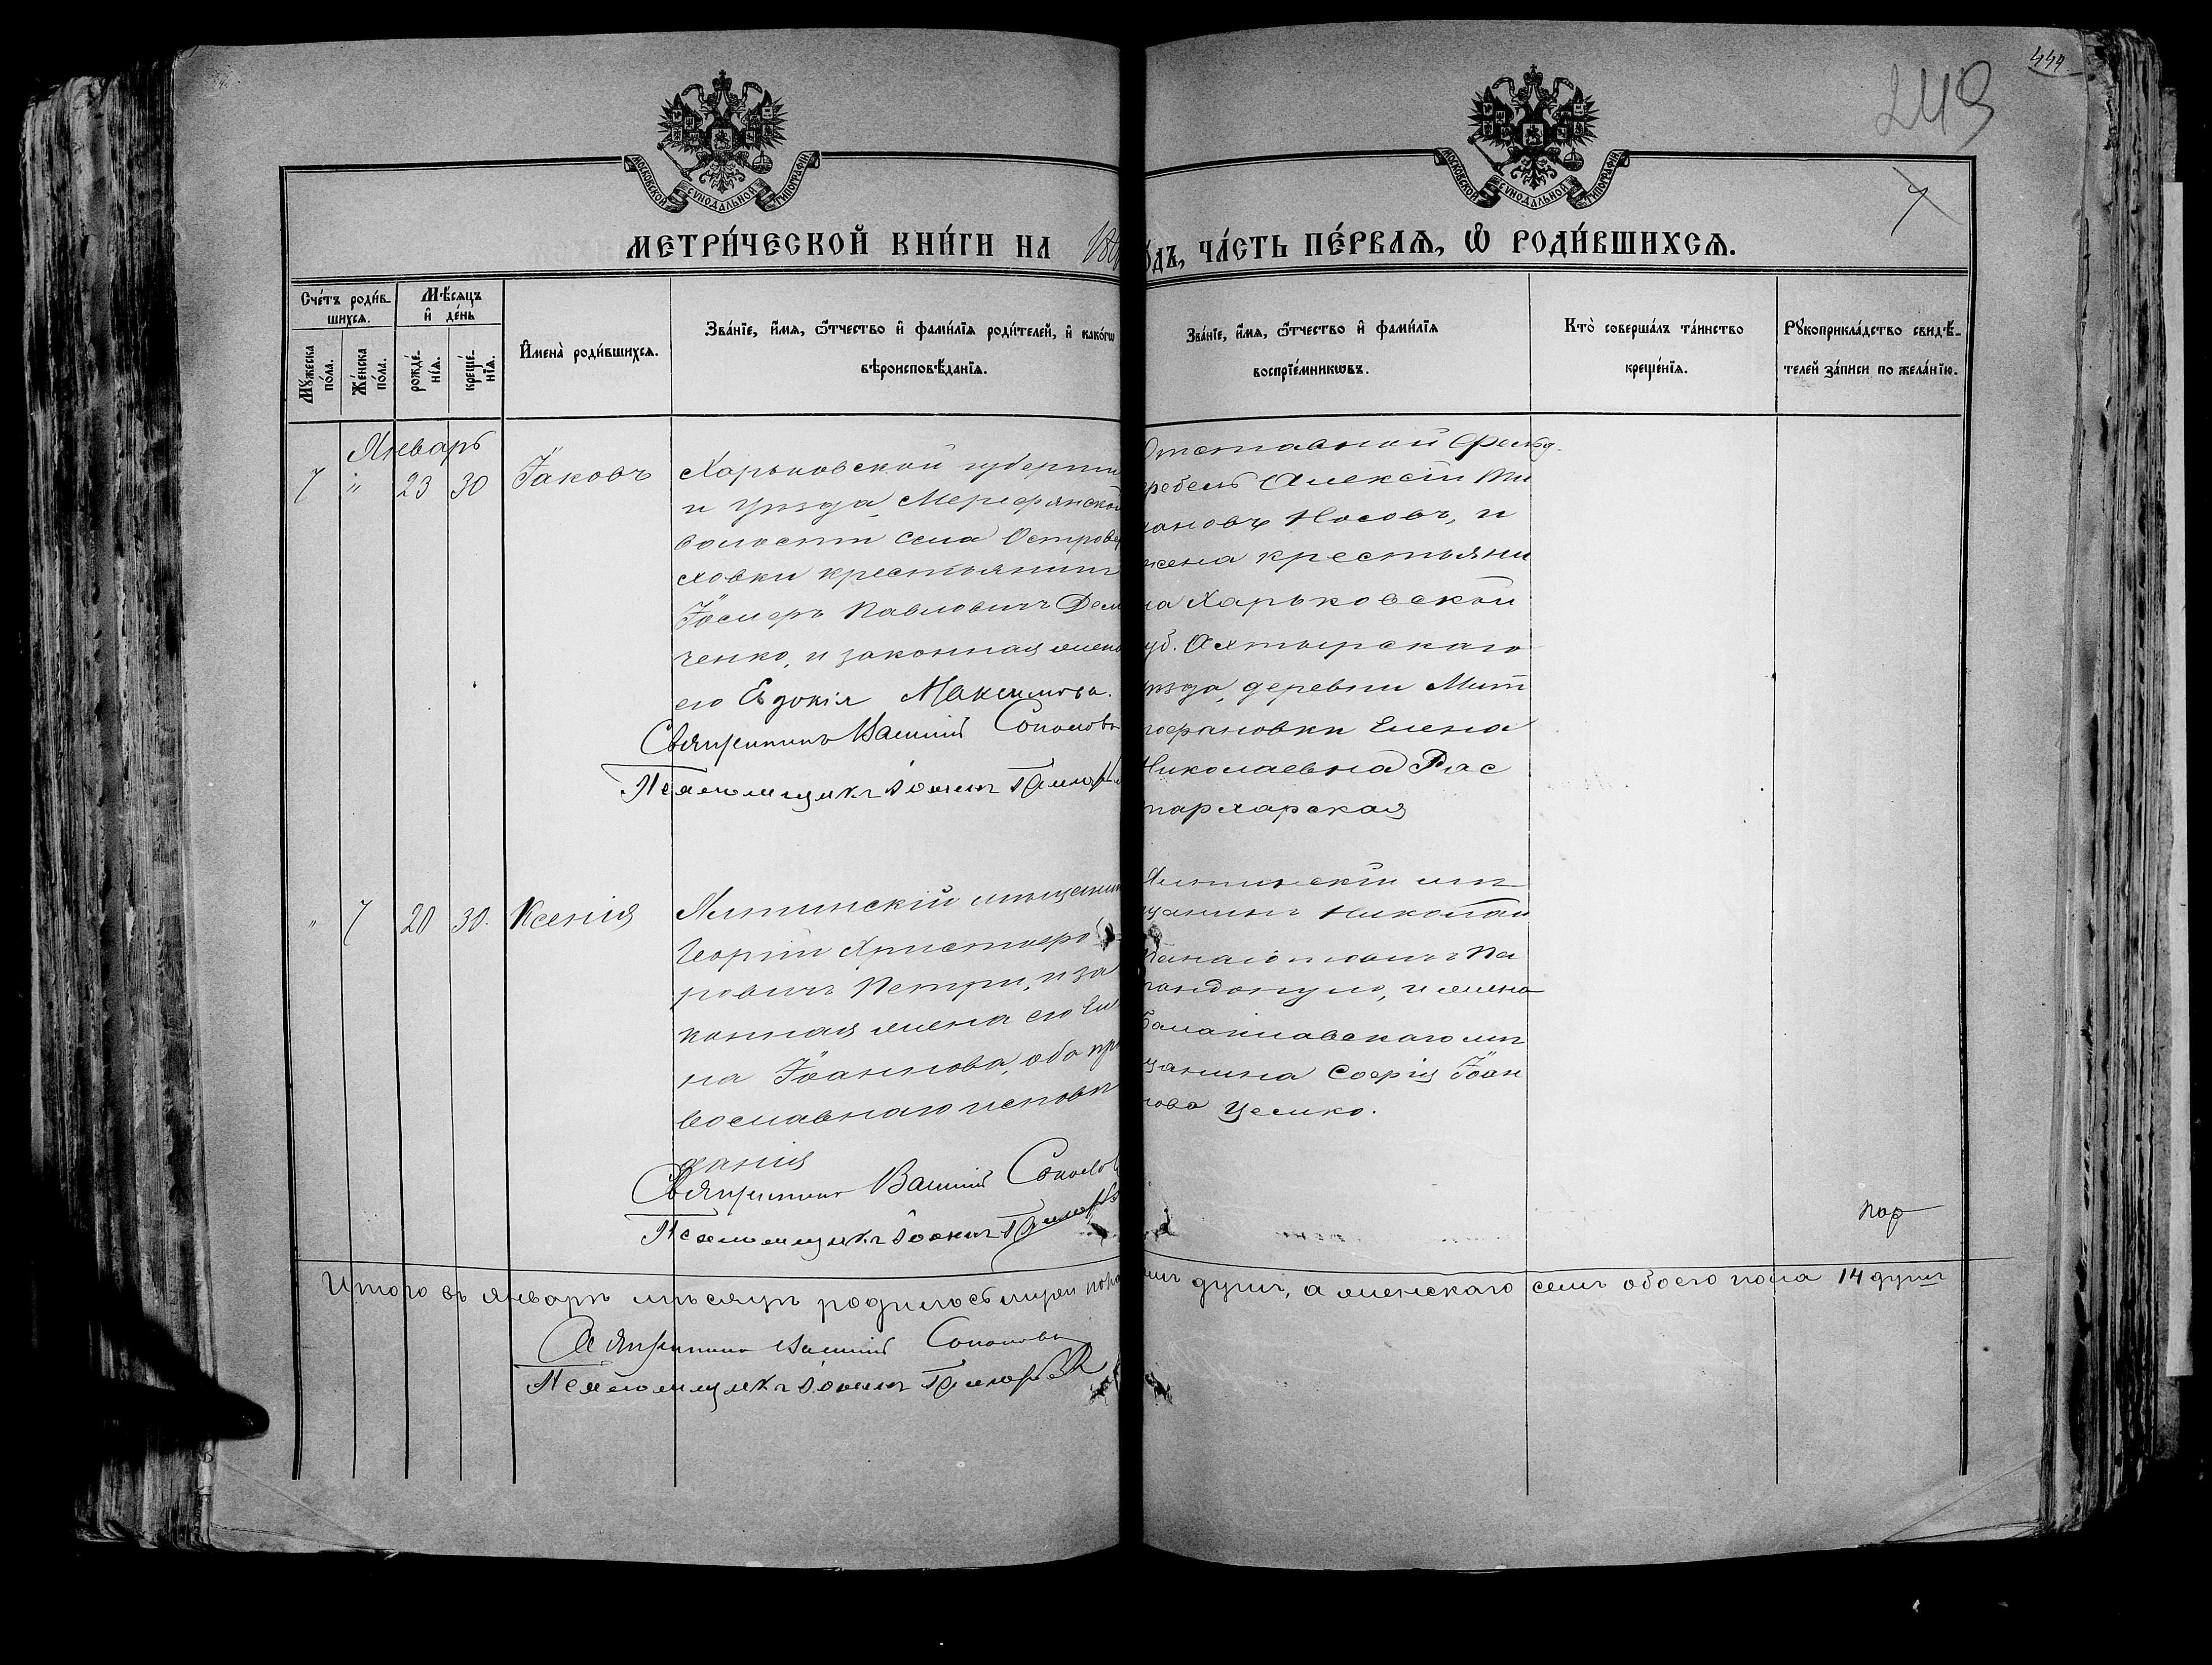 444
243
МОСКОВСКОЙ СѴНОДАЛЬНОЙ ТИПОГРАФІИ
МОСКОВСКОЙ СѴНОДАЛЬНОЙ ТИПОГРАФІИ
7
МЕТРИ́ЧЕСКОЙ КНИ́ГИ НА
ОДЪ, ЧА́СТЬ ПЕ́РВАЯ, Ѽ РОДИ́ВШИХСЯ.
Сче́тъ роди́в-
шихся.
Мѣ́сяцъ
и҆ де́нь
Мꙋжеска по́ла.
Же́нска по́ла.
рожде́-
нїя.
креще́-
нїя.
И҆мена̀ роди́вшихся.
Зва́нїе, и҆́мя, ѻ҆́тчество и҆ фами́лїя роди́телей, и҆ како́гѡ
вѣроисповѣ́данїя.
Зва́нїе, и҆́мя, ѻ҆́тчество и҆ фами́лїя
воспрїе́мникѡвъ.
Кто̀ соверша́лъ та́инство
креще́нїя.
Рꙋкоприкла́дство свидѣ́-
телей за́писи по жела́нїю.
Январь
7 " 23 30 Іаковъ
Харьковской губерніи
и уѣзда, Мерефянской
волости села Островер
ховки крестьянинъ
Іосифъ Павловичъ Дем
ченко, и законная жена
его Евдокія Максимова.
Священникъ Василій Соколовъ
Псаломщикъ
Отставной Фельд-
фебель Алексій
Носовъ, и
жена крестьяни
на Харьковской
губ. Ахтырскаго
уѣзда, деревни Мит
рофановки Елена
Николаевна Рас
тархарская
" 7 20 30. Ксенія
Ялтинскій мѣщанинъ
Георгій Христофо
ровичъ Петри, и за
конная жена его Еле
на Іоаннова, оба пра
вославнаго исповѣ
данія
Священникъ Василій Соколовъ
Псаломщикъ
Ялтинскій мѣ
щанинъ Николай
Панаіотовичъ Па
пандопуло, и жена
Балаклавскаго мѣ
щанина Софія Іоан
нова
Итого въ январѣ мѣсяцѣ родилось муж.
душъ, а женскаго семь обоего пола 14 душъ
Священникъ Василій Соколовъ
Псаломщикъ